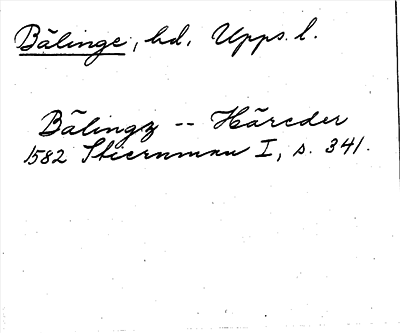 Bälinge, hd, Upps. l.
Bälingz -- Häreder
1582 Stiernman I, s. 341.